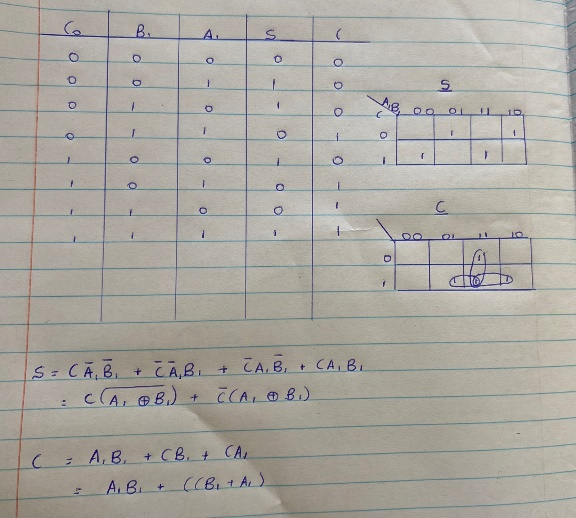 C₀ B₁ A₁ S C
0 0 0 0 0
0 0 1 1 0
0 1 0 1 0
0 1 1 0 1
1 0 0 1 0
1 0 1 0 1
1 1 0 0 1
1 1 1 1 1
S
A₁B₁ 00 01 11 10
C
0 1 1
1 1 1
C
00 01 11 10
0 1
1 1 1 1
S = C A̅₁ B̅₁ + C̅ A̅₁ B₁ + C̅ A₁ B̅₁ + C A₁ B₁
= C(A̅₁̅ ̅⊕̅ ̅B̅₁) + C̅(A₁ ⊕ B₁)
C = A₁B₁ + CB₁ + CA₁
= A₁B₁ + C(B₁ + A₁)